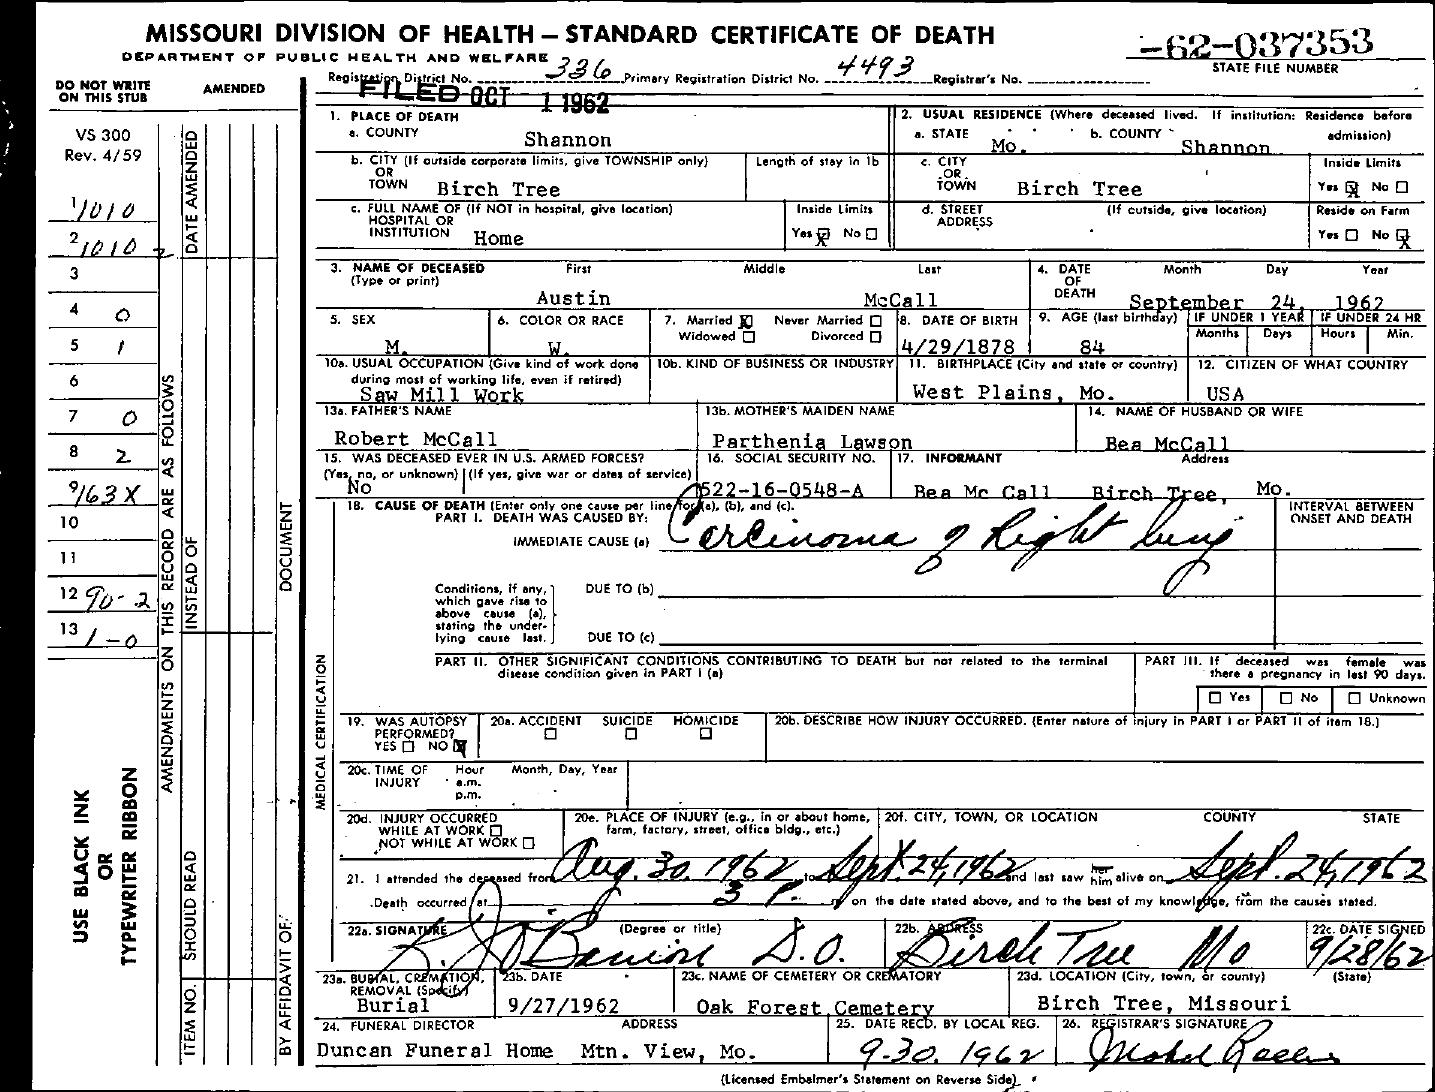 MISSOURI DIVISION OF HEALTH — STANDARD CERTIFICATE OF DEATH
-62-037353
DEPARTMENT OF PUBLIC HEALTH AND WELFARE
STATE FILE NUMBER
Registration District No. 336 Primary Registration District No. 4493 Registrar's No.
FILED OCT 1 1962
DO NOT WRITE ON THIS STUB
AMENDED
VS 300
Rev. 4/59
1 1010
2 1010 2
3
4 0
5 1
6
7 0
8 2
9 163X
10
11
12 90-2
13 1-0
USE BLACK INK
OR
TYPEWRITER RIBBON
AMENDMENTS ON THIS RECORD ARE AS FOLLOWS
DATE AMENDED
INSTEAD OF
SHOULD READ
ITEM NO.
DOCUMENT
BY AFFIDAVIT OF:
MEDICAL CERTIFICATION
1. PLACE OF DEATH
a. COUNTY Shannon
2. USUAL RESIDENCE (Where deceased lived. If institution: Residence before admission)
a. STATE Mo. b. COUNTY Shannon
b. CITY (If outside corporate limits, give TOWNSHIP only) OR TOWN Birch Tree
Length of stay in 1b
c. CITY OR TOWN Birch Tree
Inside Limits
Yes X No
c. FULL NAME OF (If NOT in hospital, give location) HOSPITAL OR INSTITUTION Home
Inside Limits
Yes X No
d. STREET ADDRESS (If outside, give location)
Reside on Farm
Yes No X
3. NAME OF DECEASED (Type or print) First Middle Last
Austin McCall
4. DATE OF DEATH Month Day Year
September 24, 1962
5. SEX M.
6. COLOR OR RACE W.
7. Married X Never Married
Widowed Divorced
8. DATE OF BIRTH 4/29/1878
9. AGE (last birthday) 84
IF UNDER 1 YEAR Months Days
IF UNDER 24 HR Hours Min.
10a. USUAL OCCUPATION (Give kind of work done during most of working life, even if retired)
Saw Mill Work
10b. KIND OF BUSINESS OR INDUSTRY
11. BIRTHPLACE (City and state or country)
West Plains, Mo.
12. CITIZEN OF WHAT COUNTRY
USA
13a. FATHER'S NAME
Robert McCall
13b. MOTHER'S MAIDEN NAME
Parthenia Lawson
14. NAME OF HUSBAND OR WIFE
Bea McCall
15. WAS DECEASED EVER IN U.S. ARMED FORCES?
(Yes, no, or unknown) (If yes, give war or dates of service)
No
16. SOCIAL SECURITY NO.
522-16-0548-A
17. INFORMANT Address
Bea Mc Call Birch Tree, Mo.
18. CAUSE OF DEATH (Enter only one cause per line for (a), (b), and (c).
PART I. DEATH WAS CAUSED BY:
INTERVAL BETWEEN ONSET AND DEATH
IMMEDIATE CAUSE (a) Carcinoma of Right lung
Conditions, if any, which gave rise to above cause (a), stating the underlying cause last.
DUE TO (b)
DUE TO (c)
PART II. OTHER SIGNIFICANT CONDITIONS CONTRIBUTING TO DEATH but not related to the terminal disease condition given in PART I (a)
PART III. If deceased was female was there a pregnancy in last 90 days.
Yes No Unknown
19. WAS AUTOPSY PERFORMED?
YES NO X
20a. ACCIDENT SUICIDE HOMICIDE
20b. DESCRIBE HOW INJURY OCCURRED. (Enter nature of injury in PART I or PART II of item 18.)
20c. TIME OF INJURY Hour a.m. p.m. Month, Day, Year
20d. INJURY OCCURRED
WHILE AT WORK
NOT WHILE AT WORK
20e. PLACE OF INJURY (e.g., in or about home, farm, factory, street, office bldg., etc.)
20f. CITY, TOWN, OR LOCATION COUNTY STATE
21. I attended the deceased from Aug. 30, 1962 to Sept. 24, 1962 and last saw her him alive on Sept. 24, 1962
Death occurred at 3 P. on the date stated above, and to the best of my knowledge, from the causes stated.
22a. SIGNATURE (Degree or title) D.O.
22b. ADDRESS Birch Tree Mo
22c. DATE SIGNED 9/28/62
23a. BURIAL, CREMATION, REMOVAL (Specify)
Burial
23b. DATE
9/27/1962
23c. NAME OF CEMETERY OR CREMATORY
Oak Forest Cemetery
23d. LOCATION (City, town, or county) (State)
Birch Tree, Missouri
24. FUNERAL DIRECTOR ADDRESS
Duncan Funeral Home Mtn. View, Mo.
25. DATE RECD. BY LOCAL REG.
9-30-1962
26. REGISTRAR'S SIGNATURE
(Licensed Embalmer's Statement on Reverse Side)